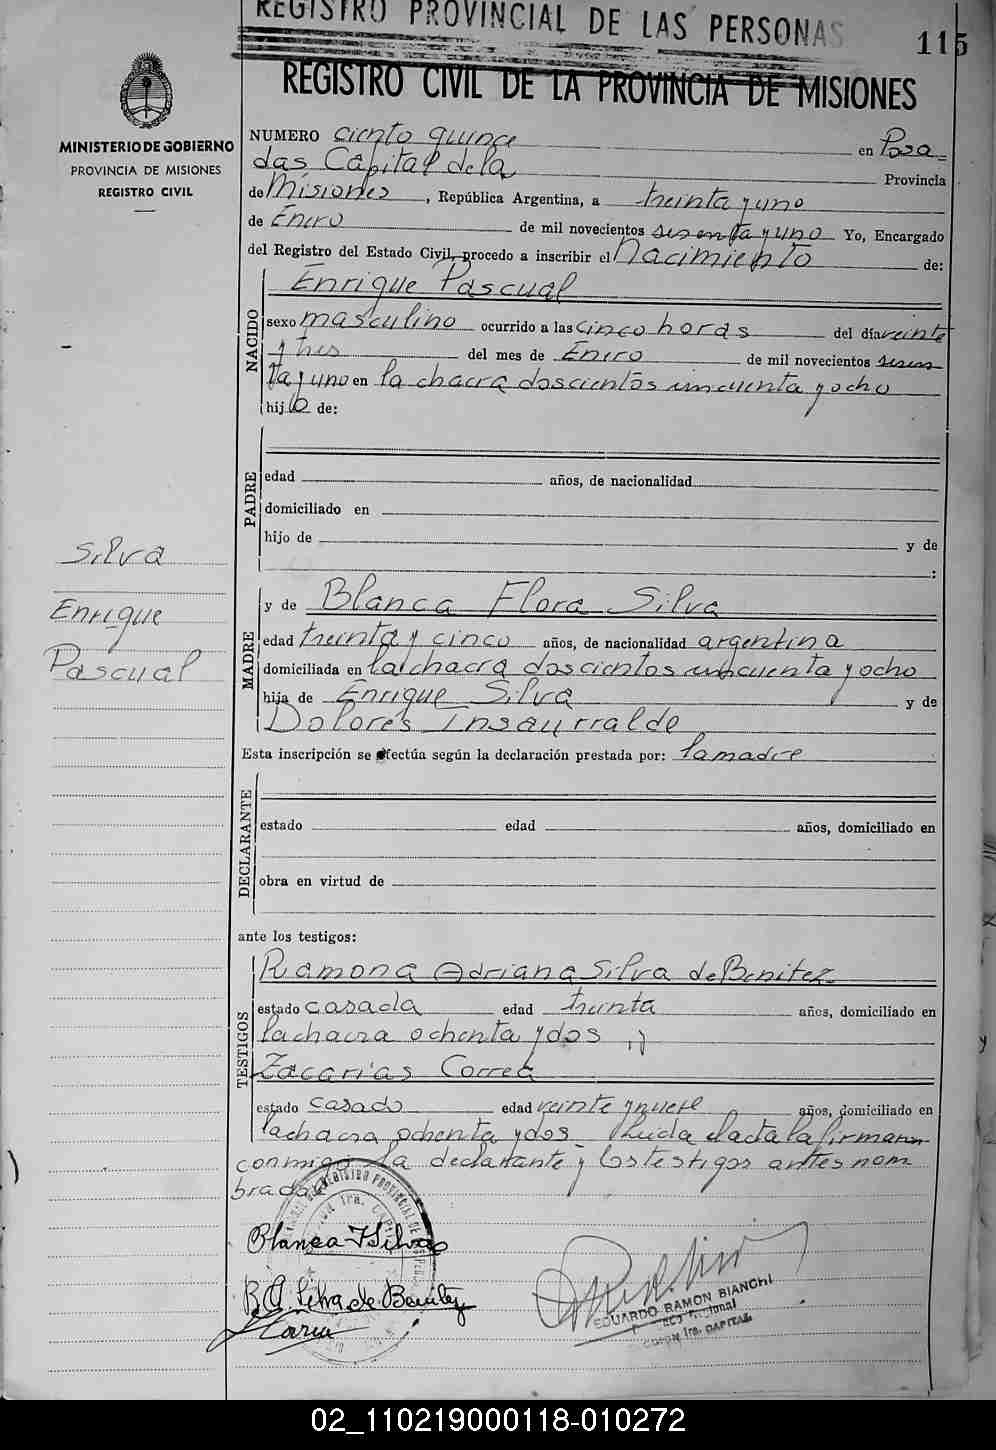 REGISTRO PROVINCIAL DE LAS PERSONAS
115
REGISTRO CIVIL DE LA PROVINCIA DE MISIONES
MINISTERIO DE GOBIERNO
PROVINCIA DE MISIONES
REGISTRO CIVIL
NUMERO ciento quince en Posa-
das Capital de la Provincia
de Misiones, República Argentina, a treinta y uno
de Enero de mil novecientos sesenta y uno Yo, Encargado
del Registro del Estado Civil, procedo a inscribir el Nacimiento de:
NACIDO
Enrique Pascual
sexo masculino ocurrido a las cinco horas del día veinte
y tres del mes de Enero de mil novecientos sesen
ta y uno en la chacra doscientos cincuenta y ocho
hijo de:
PADRE
edad años, de nacionalidad
domiciliado en
hijo de y de
:
Silva
Enrique
Pascual
MADRE
y de Blanca Flora Silva
edad treinta y cinco años, de nacionalidad argentina
domiciliada en la chacra doscientos cincuenta y ocho
hija de Enrique Silva y de
Dolores Insaurralde
Esta inscripción se efectúa según la declaración prestada por: la madre
DECLARANTE
estado edad años, domiciliado en
obra en virtud de
ante los testigos:
TESTIGOS
Ramona Adriana Silva de Benitez
estado casada edad treinta años, domiciliado en
la chacra ochenta y dos y
Zacarias Correa
estado casado edad veinte y nueve años, domiciliado en
la chacra ochenta y dos. Leida el acta la firman
conmigo la declarante y los testigos antes nom
brados
Blanca F Silva
R A Silva de Benitez
EDUARDO RAMON BIANCHI
CAPITAL
02_110219000118-010272